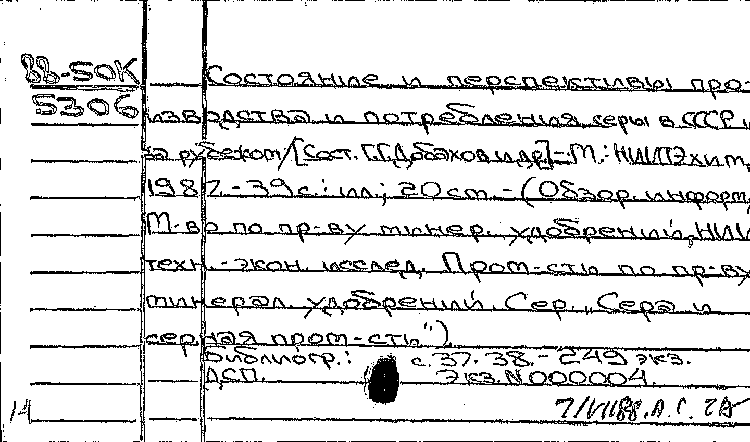 88-5OK
5306
Состояние и перспективы про-
изводства и потребления серы в СССР и
за рубежом/[Сост. Г.Г.Добахов и др]-М.: НИИТЭхим,
1987.-39с.: ил.; 20 cm.-(Обзор. информ./
М-во по пр-ву минер. удобрений, НИИ
техн.-экон. исслед. Пром-сть по пр-ву
минерал. удобрений. Сер. „Сера и
серная пром-сть")
Библиогр.: с. 37-38.-249 экз.
ДСП. Экз. N 000004.
14
7/VII88.